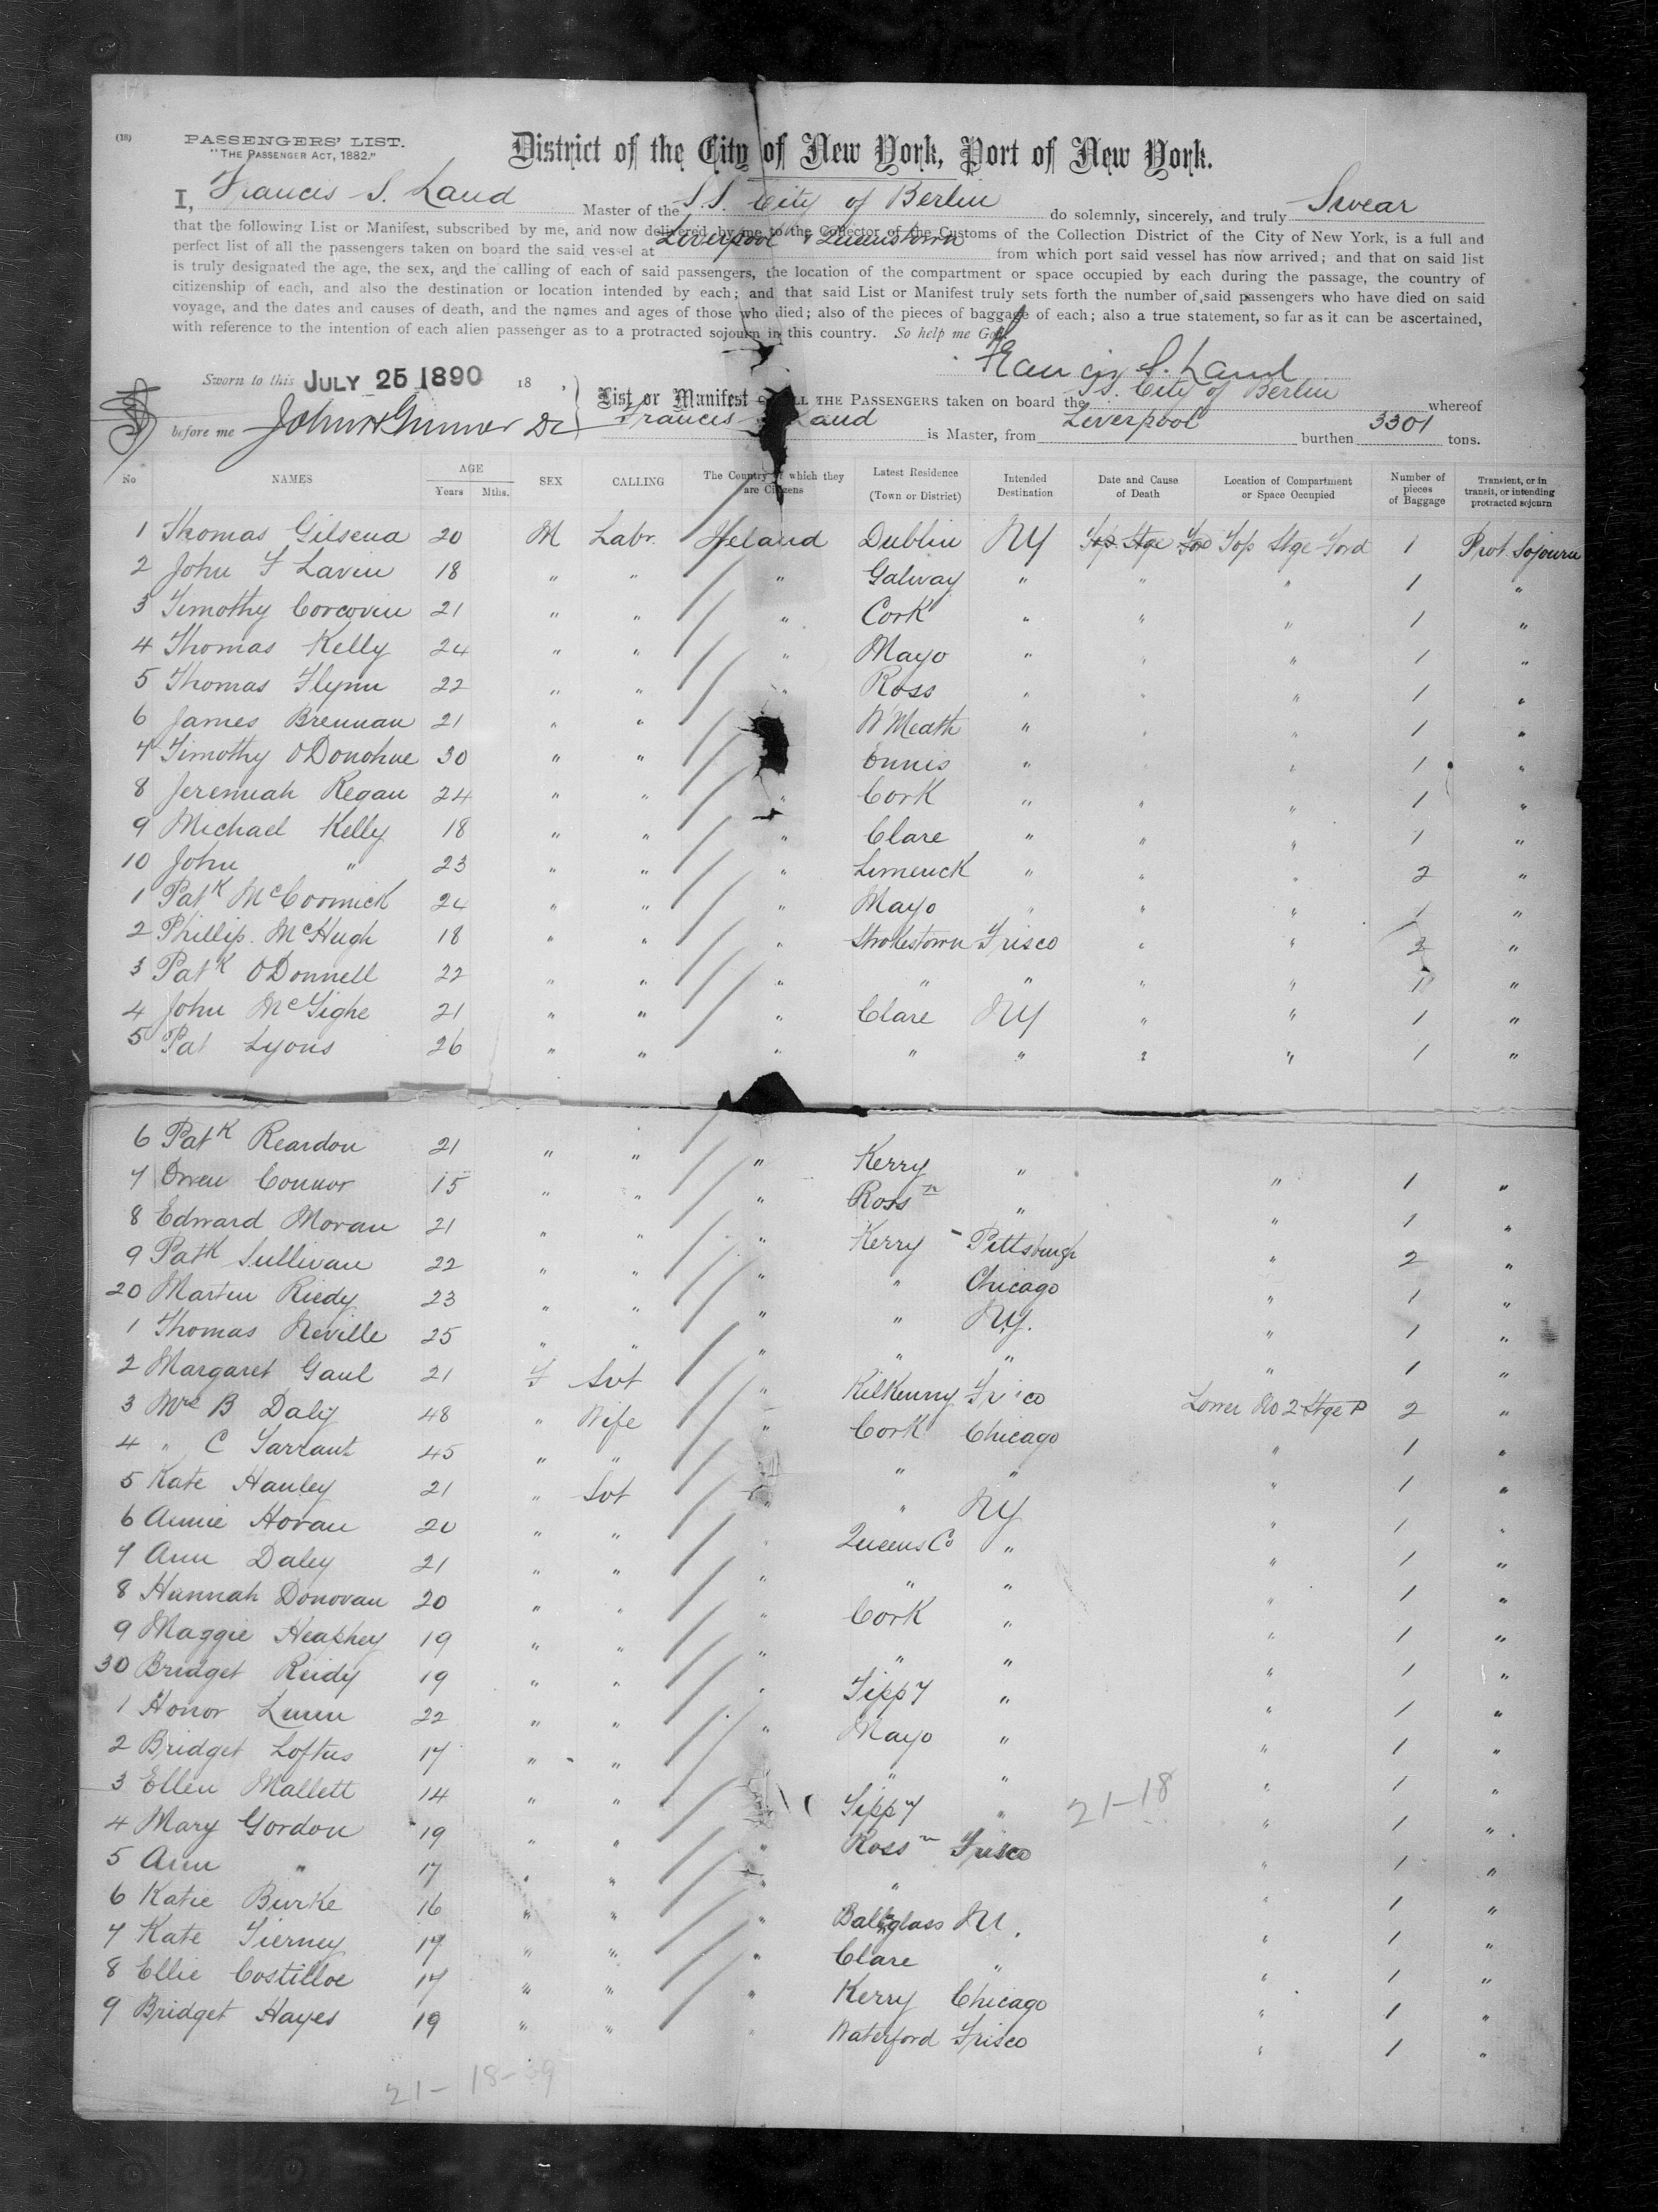 (18)
PASSENGERS' LIST.
"THE PASSENGER ACT, 1882."
District of the City of New York, Port of New York.
I, Francis S. Land Master of the S.S. City of Berlin do solemnly, sincerely, and truly Swear
that the following List or Manifest, subscribed by me, and now delivered by me to the Collector of the Customs of the Collection District of the City of New York, is a full and
perfect list of all the passengers taken on board the said vessel at Liverpool & Queenstown from which port said vessel has now arrived; and that on said list
is truly designated the age, the sex, and the calling of each of said passengers, the location of the compartment or space occupied by each during the passage, the country of
citizenship of each, and also the destination or location intended by each; and that said List or Manifest truly sets forth the number of said passengers who have died on said
voyage, and the dates and causes of death, and the names and ages of those who died; also of the pieces of baggage of each; also a true statement, so far as it can be ascertained,
with reference to the intention of each alien passenger as to a protracted sojourn in this country. So help me God.
Francis S. Land
Sworn to this JULY 25 1890 18 ,
before me
List or Manifest OF ALL THE PASSENGERS taken on board the SS. City of Berlin whereof
Francis Land is Master, from Liverpool burthen 3301 tons.
No NAMES AGE Years Mths. SEX CALLING The Country of which they are Citizens Latest Residence (Town or District) Intended Destination Date and Cause of Death Location of Compartment or Space Occupied Number of pieces of Baggage Transient, or in transit, or intending protracted sojourn
1 Thomas Gilsena 20 M Labr. Ireland Dublin NY Top Stge Ford Top Stge Ford 1 Prot. Sojourn
2 John F Lavin 18 " " " Galway " " " 1 "
3 Timothy Corcovin 21 " " " Cork " " " 1 "
4 Thomas Kelly 24 " " " Mayo " " " 1 "
5 Thomas Flynn 22 " " " Ross " " " 1 "
6 James Brennan 21 " " W Meath " " " 1 "
7 Timothy ODonohue 30 " " Ennis " " " 1 "
8 Jeremiah Regan 24 " " " Cork " " " 1 "
9 Michael Kelly 18 " " " Clare " " " 1 "
10 John " 23 " " " Limerick " " " 2 "
1 Patk McCormick 24 " " " Mayo " " " 1 "
2 Phillip. McHugh 18 " " " Strokestown Frisco " " 2 "
3 Patk ODonnell 22 " " " " " " " 1 "
4 John McTighe 21 " " " Clare NY " " 1 "
5 Pat Lyons 26 " " " " " " " 1 "
6 Patk Reardon 21 " " " Kerry " " 1 "
7 Owen Connor 15 " " " Ross n " " 1 "
8 Edward Moran 21 " " " Kerry - Pittsburgh " 2 "
9 Patk Sullivan 22 " " " " Chicago " 1 "
20 Martin Riedy 23 " " " " NY. " 1 "
1 Thomas Neville 25 " " " " " " 1 "
2 Margaret Gaul 21 F Svt " Kilkenny Frisco Lower No 2 Stge P 2 "
3 Mrs B Daly 48 " Wife " Cork Chicago " 1 "
4 " C Tarrant 45 " " " " " 1 "
5 Kate Hanley 21 " Svt " " NY " 1 "
6 Annie Horan 20 " " " Queens Co " " 1 "
7 Ann Daley 21 " " " " " " 1 "
8 Hannah Donovan 20 " " " Cork " " 1 "
9 Maggie Heaphey 19 " " " " " " 1 "
30 Bridget Reidy 19 " " " Tippy " " 1 "
1 Honor Lunn 22 " " " Mayo " " 1 "
2 Bridget Loftus 17 " " " " " 1 "
3 Ellen Mallett 14 " " Tippy " 21-18 " 1 "
4 Mary Gordon 19 " " " Ross n Frisco " 1 "
5 Ann " 17 " " " " " 1 "
6 Katie Burke 16 " " " Ballyglass NY. " 1 "
7 Kate Tierney 17 " " " Clare " " 1 "
8 Ellie Costilloe 17 " " " Kerry Chicago " 1 "
9 Bridget Hayes 19 " " " Waterford Frisco " 1 "
21- 18-39